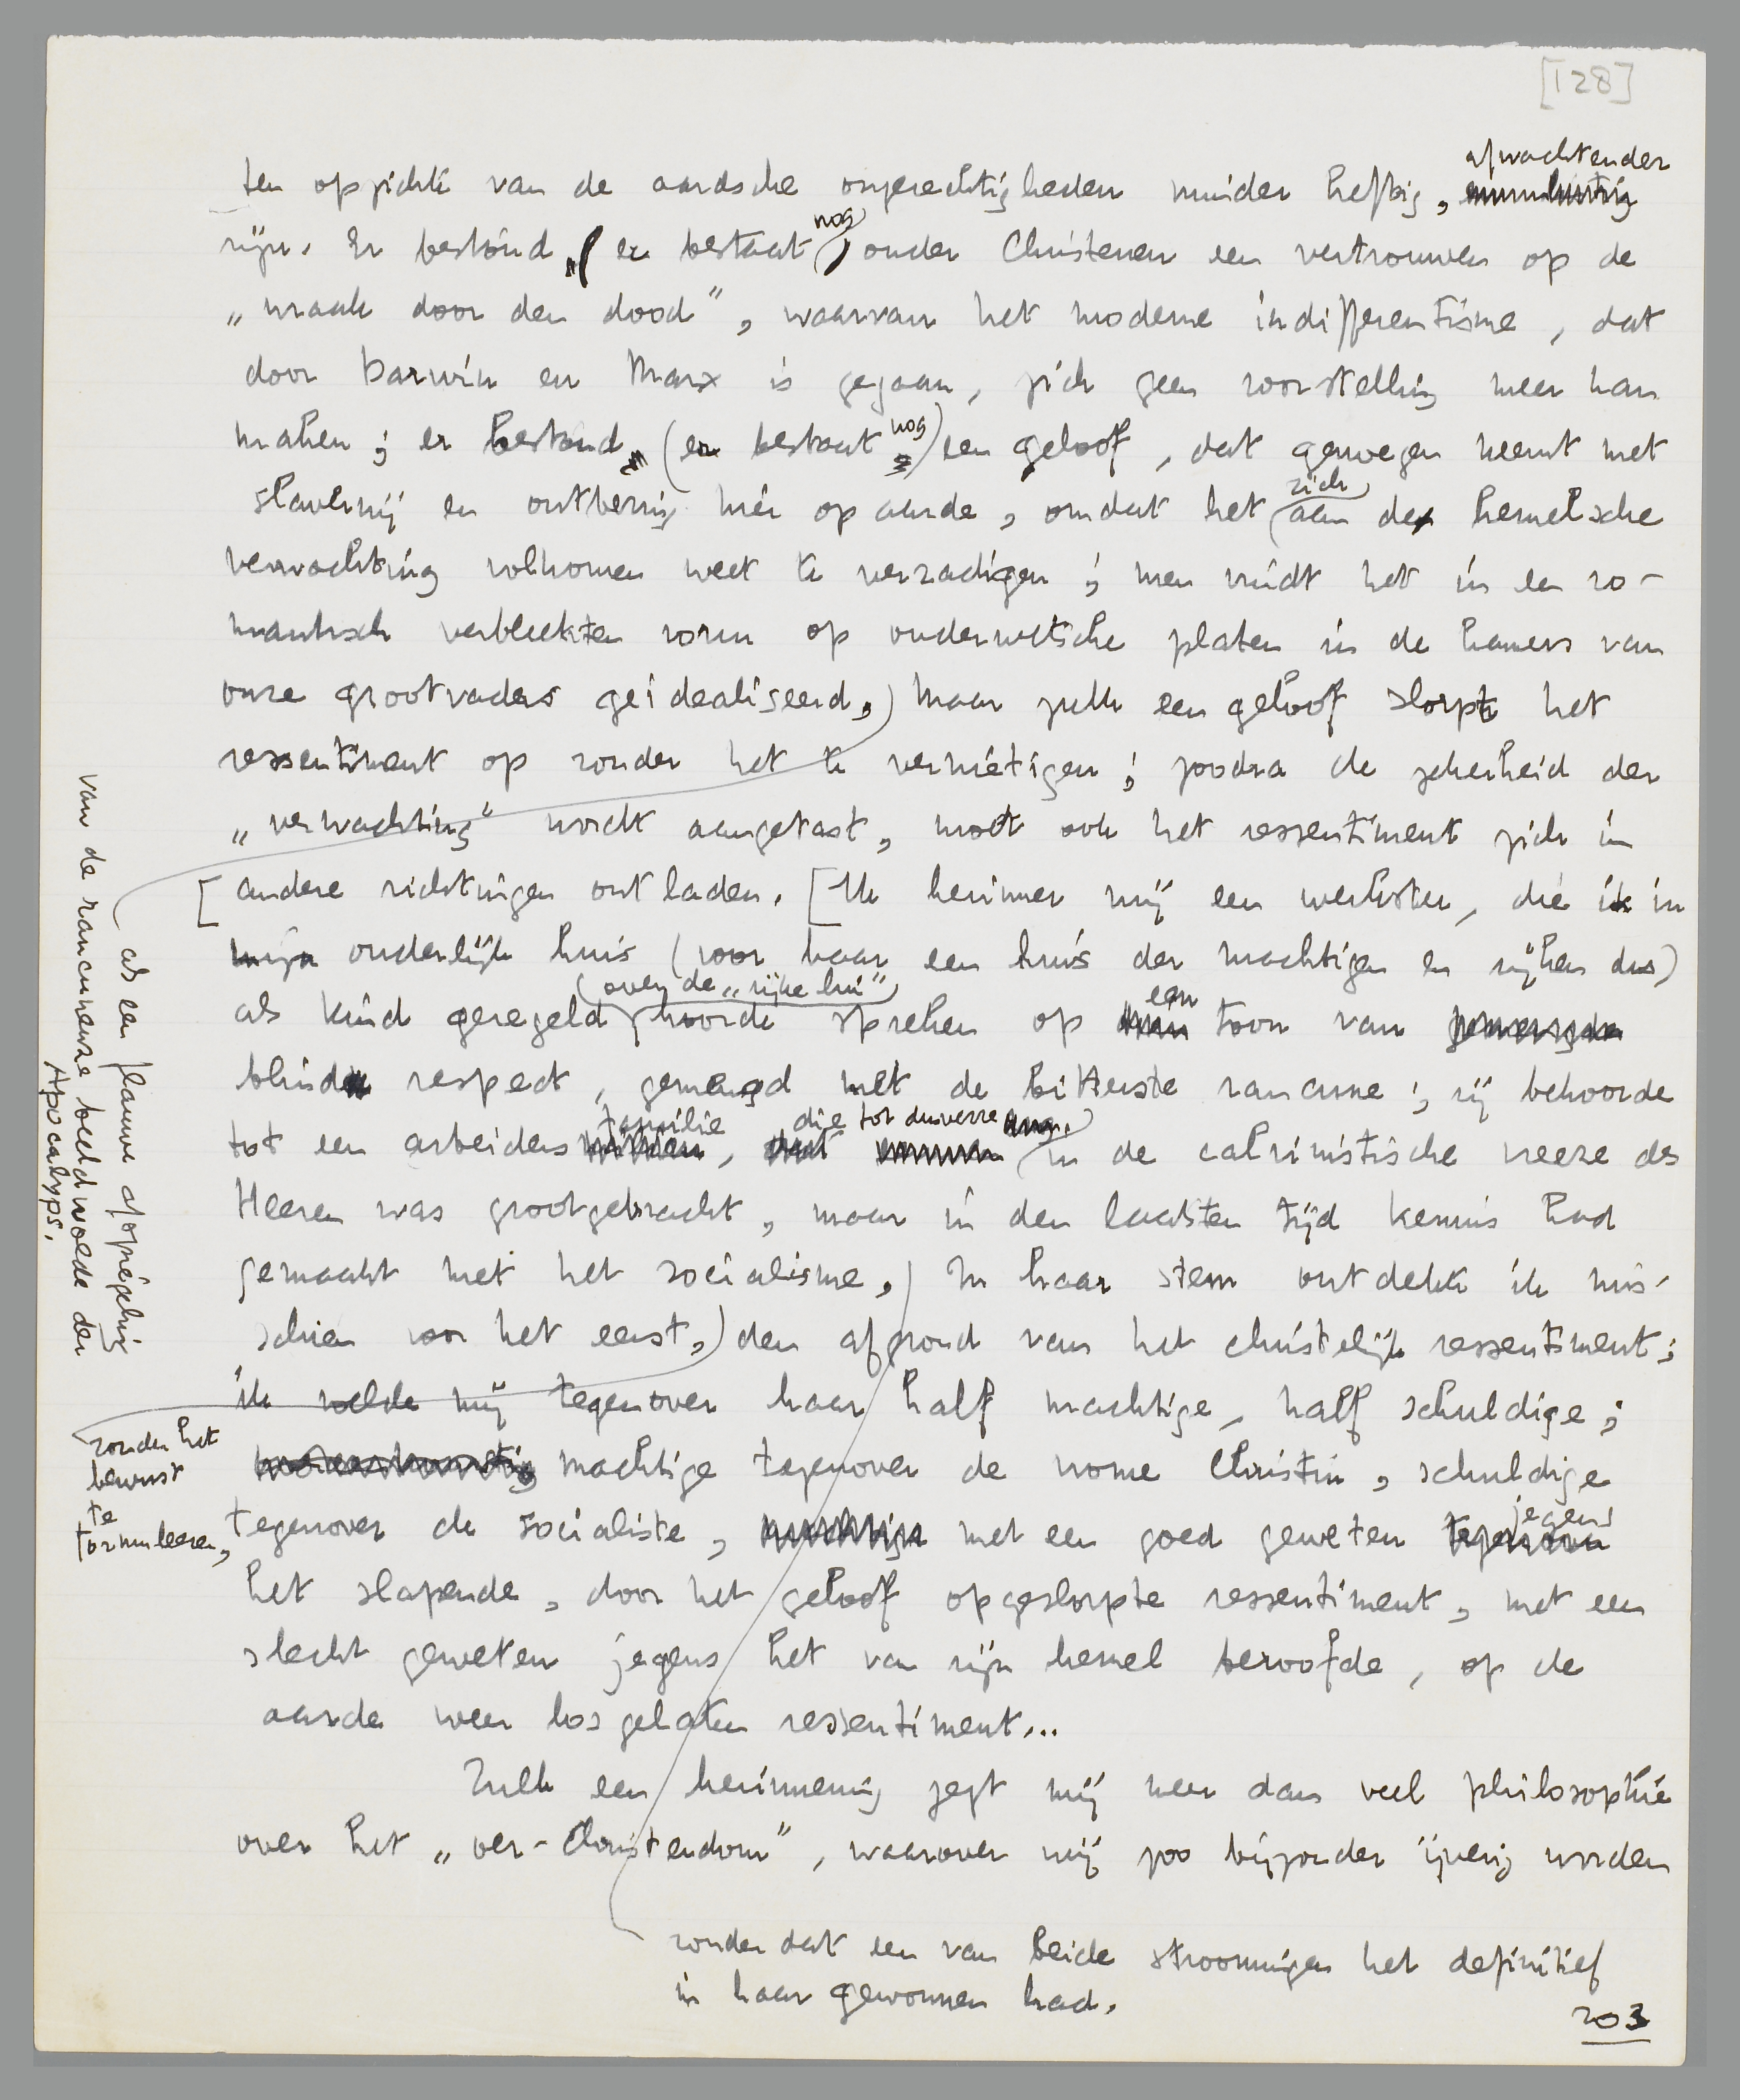 [128]
afwachtender
ten opzichte van de aardsche ongerechtigheden minder heftig,
zijn. Er bestond (er bestaat nog) onder Christenen een vertrouwen op de
„wraak door den dood”, waarvan het moderne indifferentisme, dat
door Darwin en Marx is gegaan, zich geen voorstelling meer kan
maken; er bestond (er bestaat nog) een geloof, dat genoegen neemt met
slavernij en ontbering hier op aarde, omdat het zich aan de hemelsche
verwachting volkomen weet te verzadigen; men vindt het in een ro-
mantisch verbleekten vorm op ouderwetsche platen in de kamers van
onze grootvaders geidealiseerd,) Maar zulk een geloof slorpt het
ressentiment op zonder het te vernietigen; zoodra de zekerheid der
„verwachting” wordt aangetast, moet ook het ressentiment zich in
andere richtingen ontladen. [Ik herinner mij een werkster, die ik in
mijn ouderlijk huis (voor haar een huis der machtigen en rijken dus)
als kind geregeld (over de „rijke lui”) hoorde spreken op een toon van
blind respect, gemengd met de bitterste rancune; zij behoorde
tot een arbeidersfamilie, die tot dusverre in de calvinistische vreeze des
Heeren was grootgebracht, maar in den laatsten tijd kennis had
gemaakt met het socialisme,) In haar stem ontdekte ik mis-
schien voor het eerst,) den afgrond van het christelijk ressentiment;
ik voelde mij tegenover haar half machtige, half schuldige;
machtige tegenover de vrome Christin, schuldige
tegenover de socialiste, met een goed geweten jegens
het slapende, door het geloof opgeslorpte ressentiment, met een
slecht geweten jegens het van zijn hemel beroofde, op de
aarde weer losgelaten ressentiment...
Zulk een herinnering zegt mij meer dan veel philosophie
over het „oer-Christendom”, waarover wij zoo bijzonder ijverig worden
zonder dat een van beide stroomingen het definitief
in haar gewonnen had.
203
als een flauwe afspiegeling
van de rancuneuze beeldwoede der
Apocalyps,
zonder het
bewust
te
formuleeren,